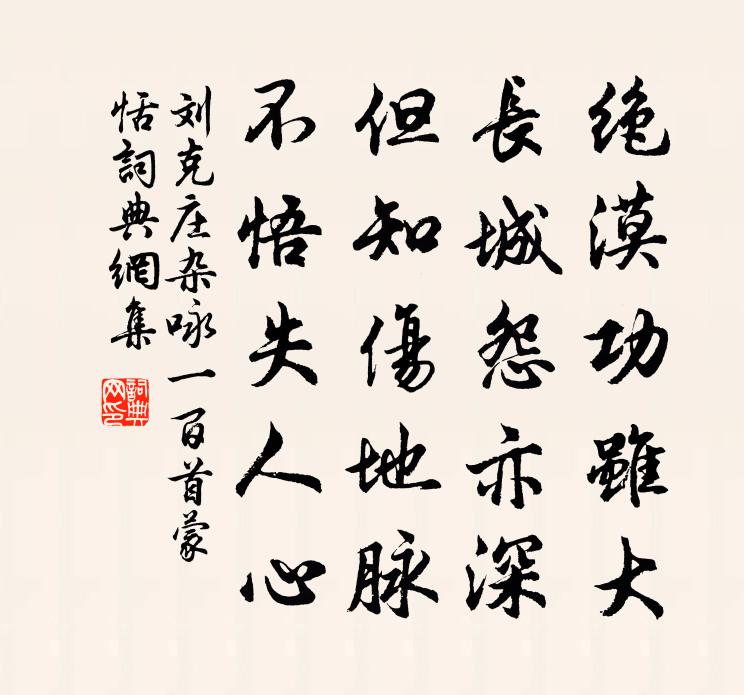 绝漠功雖大
長城怨亦深
但知傷地脉
不悟失人心
刘克庄杂咏一百首蒙
恬詞典網集
詞典网印